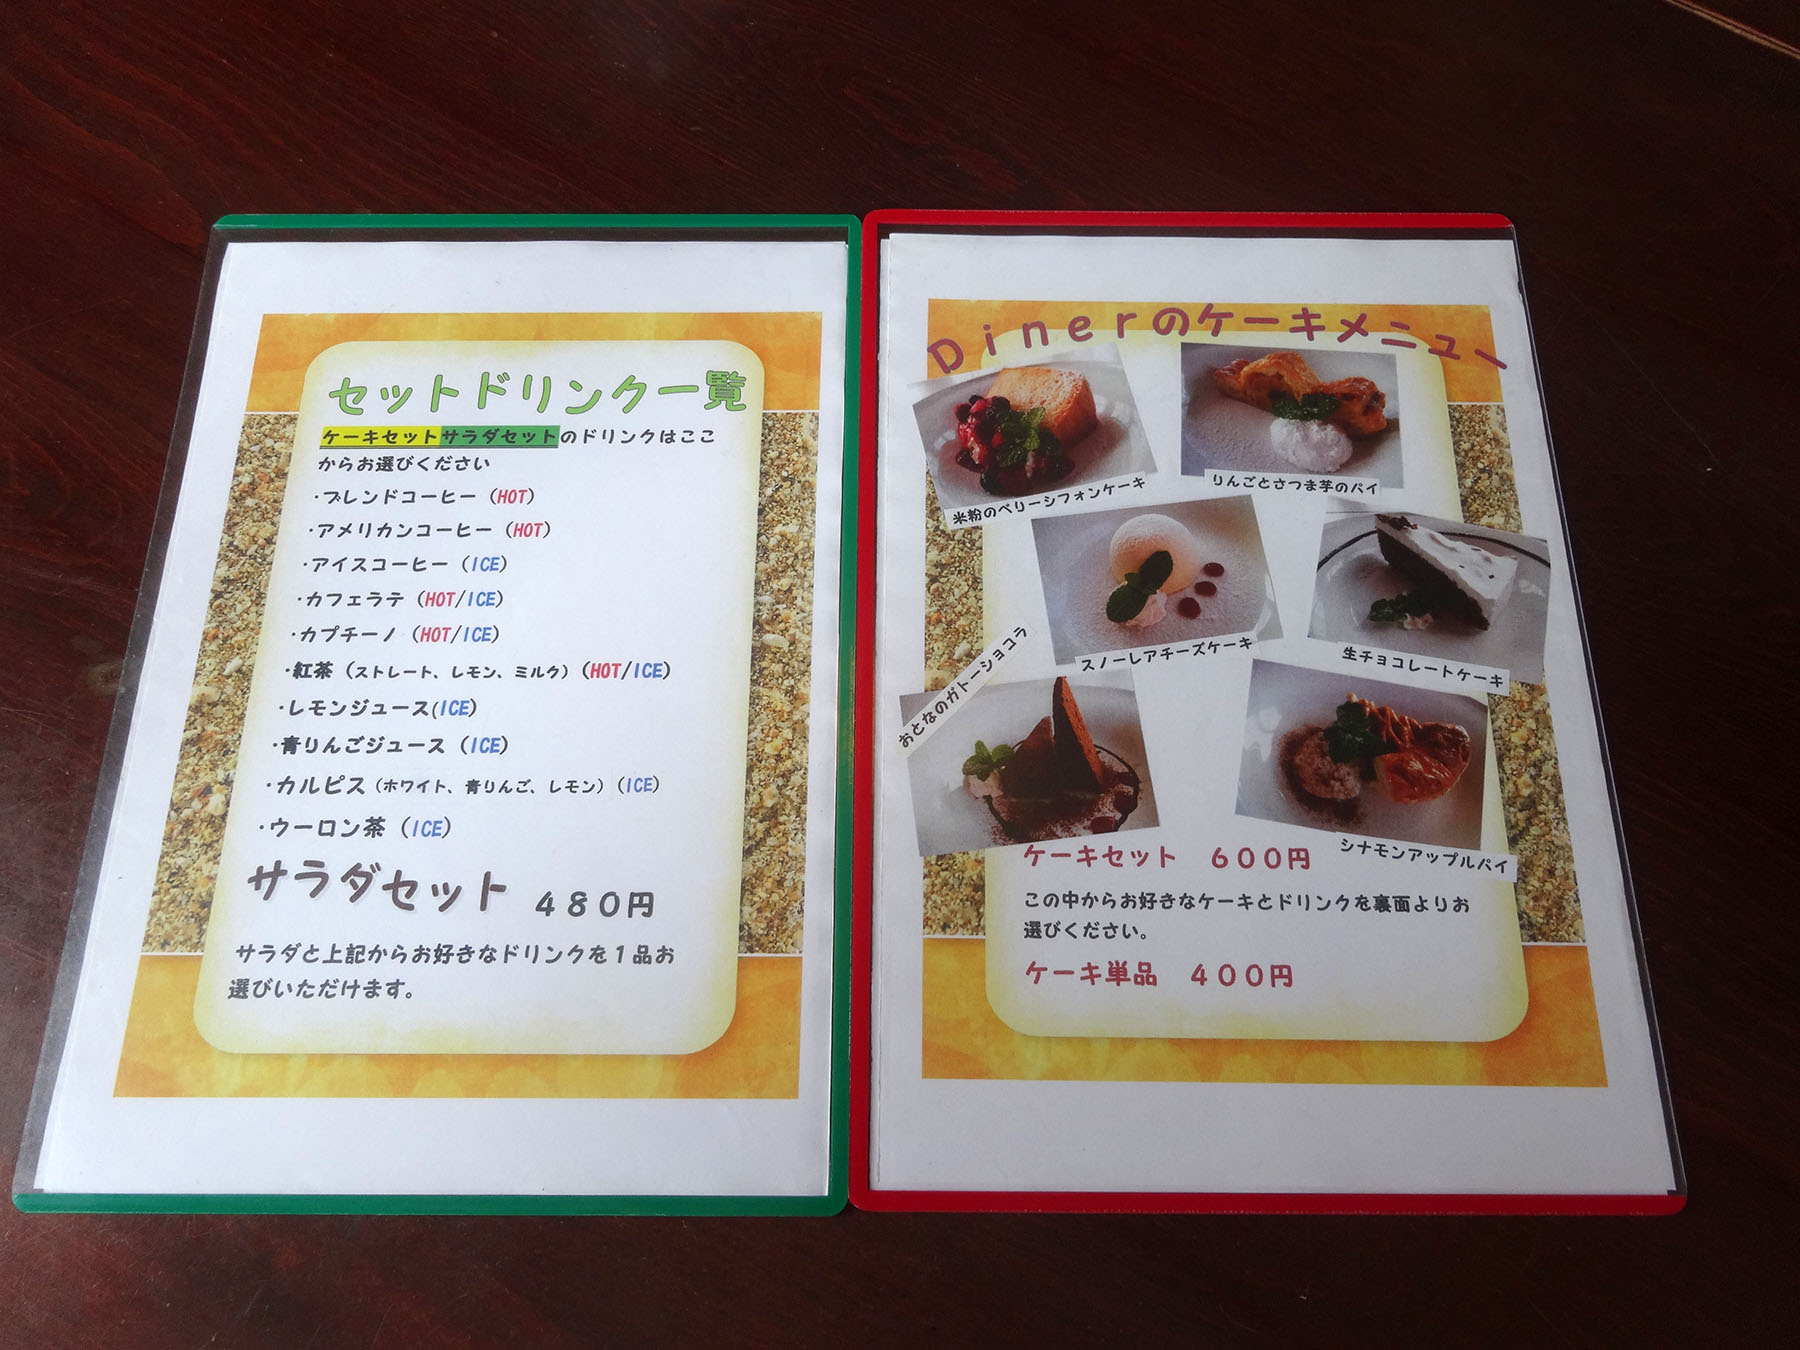 セットドリンク一覧
ケーキセットサラダセットのドリンクはここ
からお選びください
・ブレンドコーヒー（HOT）
・アメリカンコーヒー（HOT）
・アイスコーヒー（ICE）
・カフェラテ（HOT/ICE）
・カプチーノ（HOT/ICE）
・紅茶（ストレート、レモン、ミルク）（HOT/ICE）
・レモンジュース(ICE）
・青りんごジュース（ICE）
・カルピス（ホワイト、青りんご、レモン）（ICE）
・ウーロン茶（ICE）
サラダセット　４８０円
サラダと上記からお好きなドリンクを１品お
選びいただけます。
Ｄｉｎｅｒのケーキメニュー
米粉のベリーシフォンケーキ
りんごとさつま芋のパイ
スノーレアチーズケーキ
生チョコレートケーキ
おとなのガトーショコラ
シナモンアップルパイ
ケーキセット　６００円
この中からお好きなケーキとドリンクを裏面よりお
選びください。
ケーキ単品　４００円